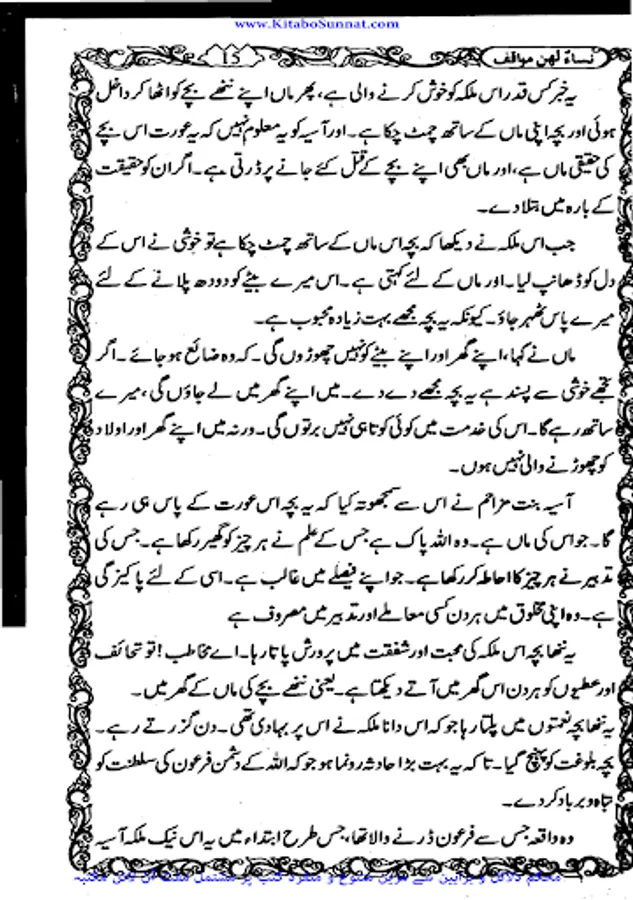 www.KitaboSunnat.com
نساءٌ لهن مواقف
15
یہ خبر کس قدر اس ملکہ کو خوش کرنے والی ہے، پھر ماں اپنے ننھے بچے کو اٹھا کر داخل
ہوئی اور بچہ اپنی ماں کے ساتھ چمٹ چکا ہے۔ اور آسیہ کو یہ معلوم نہیں کہ یہ عورت اس بچے
کی حقیقی ماں ہے، اور ماں بھی اپنے بچے کے قتل کئے جانے پر ڈرتی ہے۔ اگر ان کو حقیقت
کے بارہ میں بتلا دے۔
جب اس ملکہ نے دیکھا کہ بچہ اس ماں کے ساتھ چمٹ چکا ہے تو خوشی نے اس کے
دل کو ڈھانپ لیا۔ اور ماں کے لئے کہتی ہے۔ اس میرے بیٹے کو دودھ پلانے کے لئے
میرے پاس ٹھہر جاؤ۔ کیونکہ یہ بچہ مجھے بہت زیادہ محبوب ہے۔
ماں نے کہا، اپنے گھر اور اپنے بیٹے کو نہیں چھوڑوں گی۔ کہ وہ ضائع ہو جائے۔ اگر
تجھے خوشی سے پسند ہے یہ بچہ مجھے دے دے۔ میں اپنے گھر میں لے جاؤں گی، میرے
ساتھ رہے گا۔ اس کی خدمت میں کوئی کوتاہی نہیں برتوں گی۔ ورنہ میں اپنے گھر اور اولاد
کو چھوڑنے والی نہیں ہوں۔
آسیہ بنت مزاحم نے اس سے سمجھوتہ کیا کہ یہ بچہ اس عورت کے پاس ہی رہے
گا۔ جو اس کی ماں ہے۔ وہ اللہ پاک ہے جس کے علم نے ہر چیز کو گھیر رکھا ہے۔ جس کی
تدبیر نے ہر چیز کا احاطہ کر رکھا ہے۔ جو اپنے فیصلے میں غالب ہے۔ اسی کے لئے پاکیزگی
ہے۔ وہ اپنی مخلوق میں ہر دن کسی معاملے اور تدبیر میں مصروف ہے
یہ ننھا بچہ اس ملکہ کی محبت اور شفقت میں پرورش پاتا رہا۔ اے مخاطب! تو تحائف
اور عطیوں کو ہر دن اس گھر میں آتے دیکھتا ہے۔ یعنی ننھے بچے کی ماں کے گھر میں۔
یہ ننھا بچہ نعمتوں میں پلتا رہا جو کہ اس دانا ملکہ نے اس پر بہا دی تھی۔ دن گزرتے رہے۔
بچہ بلوغت کو پہنچ گیا۔ تاکہ یہ بہت بڑا حادثہ رونما ہو جو کہ اللہ کے دشمن فرعون کی سلطنت کو
تباہ و برباد کر دے۔
وہ واقعہ جس سے فرعون ڈرنے والا تھا، جس طرح ابتداء میں یہ اس نیک ملکہ آسیہ
محکم دلائل و براہین سے مزین متنوع و منفرد کتب پر مشتمل مفت آن لائن مکتبہ